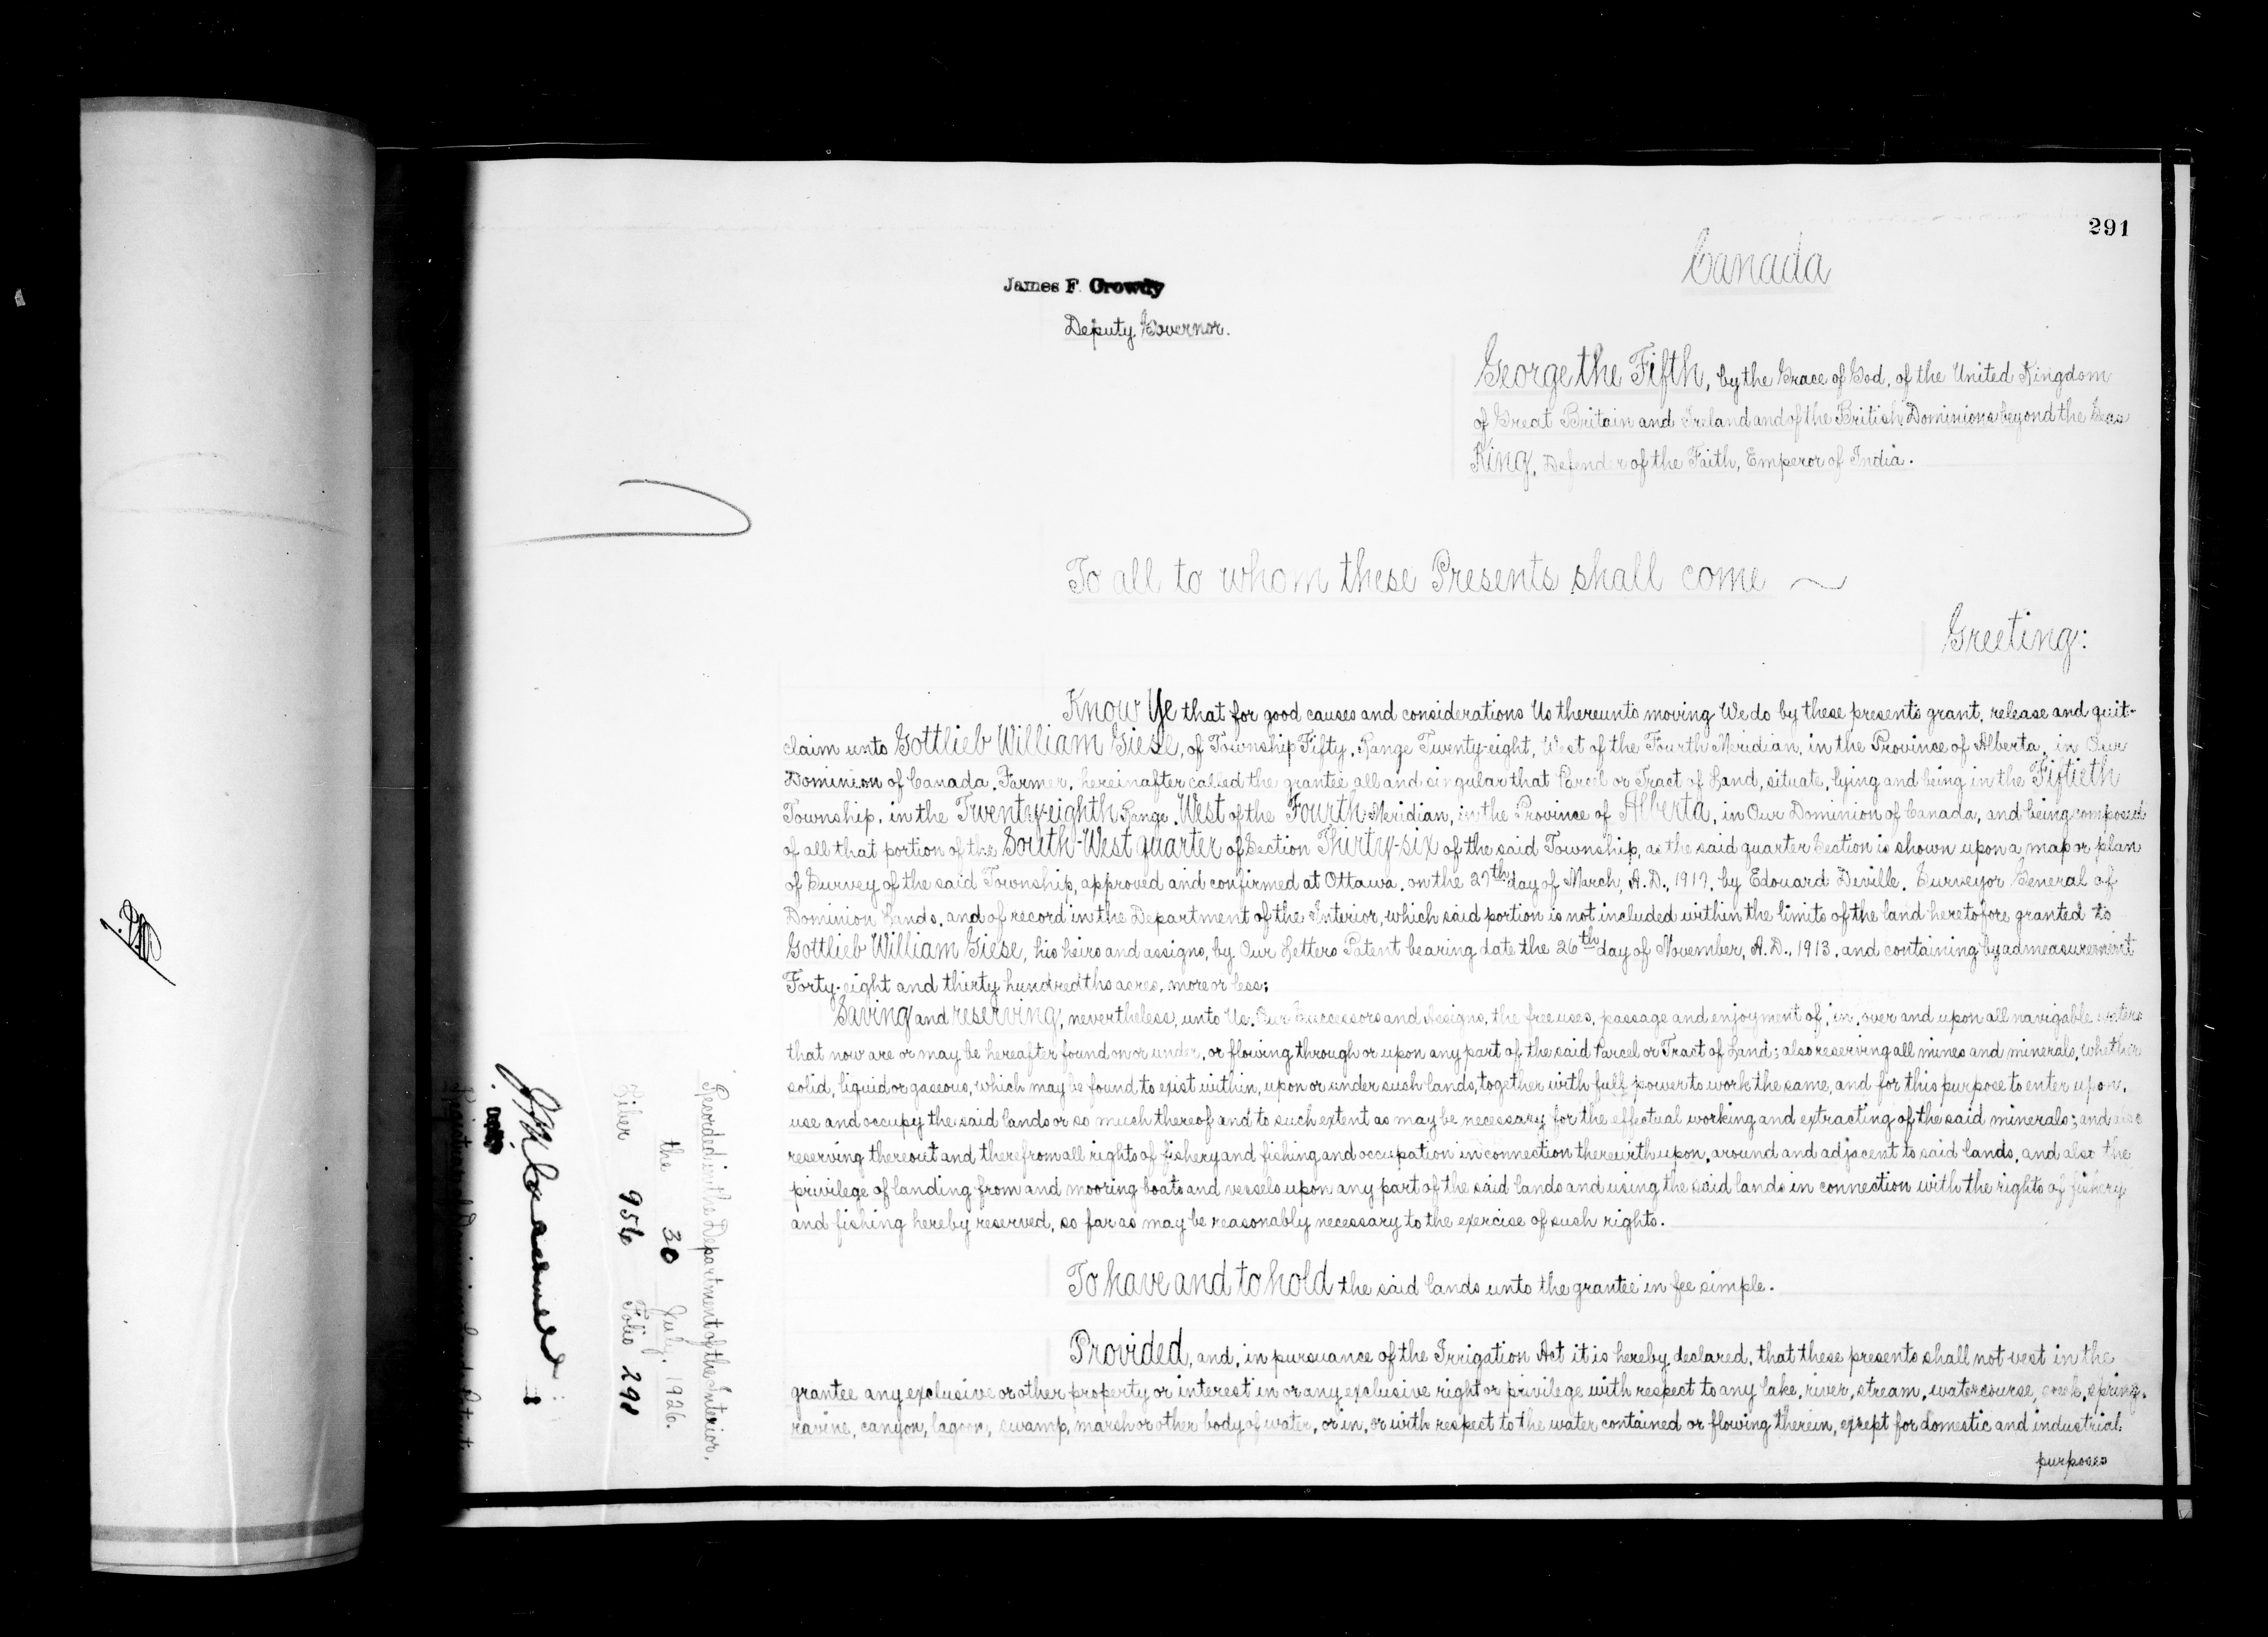 291
Canada
James F. Crowdy
Deputy Governor.
George the Fifth, by the Grace of God, of the United Kingdom
of Great Britain and Ireland and of the British Dominions beyond the Seas
King, Defender of the Faith, Emperor of India.
To all to whom these Presents shall come
Greeting:
Know Ye that for good causes and considerations Us thereunto moving We do by these presents grant, release and quit-
claim unto Gottlieb William Giese, of Township Fifty, Range Twenty-eight, West of the Fourth Meridian, in the Province of Alberta, in Our
Dominion of Canada, Farmer, hereinafter called the grantee all and singular that Parcel or Tract of Land, situate, lying and being in the Fiftieth
Township, in the Twenty-eighth Range, West of the Fourth Meridian, in the Province of Alberta, in Our Dominion of Canada, and being composed
of all that portion of the South-West quarter of Section Thirty-six of the said Township, as the said quarter Section is shown upon a map or plan
of Survey of the said Township, approved and confirmed at Ottawa, on the 27th day of March, A.D., 1917, by Edouard Deville, Surveyor General of
Dominion Lands, and of record in the Department of the Interior, which said portion is not included within the limits of the land heretofore granted to
Gottlieb William Giese, his heirs and assigns, by Our Letters Patent bearing date the 26th day of November, A.D., 1913, and containing by admeasurement
Forty-eight and thirty hundredths acres, more or less;
Saving and reserving, nevertheless, unto Us, Our Successors and Assigns, the free uses, passage and enjoyment of, in, over and upon all navigable waters
that now are or may be hereafter found on or under, or flowing through or upon any part of the said Parcel or Tract of Land; also reserving all mines and minerals, whether
solid, liquid or gaseous, which may be found to exist within, upon or under such lands, together with full power to work the same, and for this purpose to enter upon,
use and occupy the said lands or so much thereof and to such extent as may be necessary for the effectual working and extracting of the said minerals; and also
reserving thereout and therefrom all rights of fishery and fishing and occupation in connection therewith upon, around and adjacent to said lands, and also the
privilege of landing from and mooring boats and vessels upon any part of the said lands and using the said lands in connection with the rights of fishery
and fishing hereby reserved, so far as may be reasonably necessary to the exercise of such rights.
To have and to hold the said lands unto the grantee in fee simple.
Provided, and, in pursuance of the Irrigation Act it is hereby declared, that these presents shall not vest in the
grantee any exclusive or other property or interest in or any exclusive right or privilege with respect to any lake, river, stream, watercourse, creek, spring,
ravine, canyon, lagoon, swamp, marsh or other body of water, or in, or with respect to the water contained or flowing therein, except for domestic and industrial
purposes
Recorded in the Department of the Interior,
the 30 July, 1926.
Liber 956 Folio 291
Deputy
Registrar of Dominion Lands Patents.